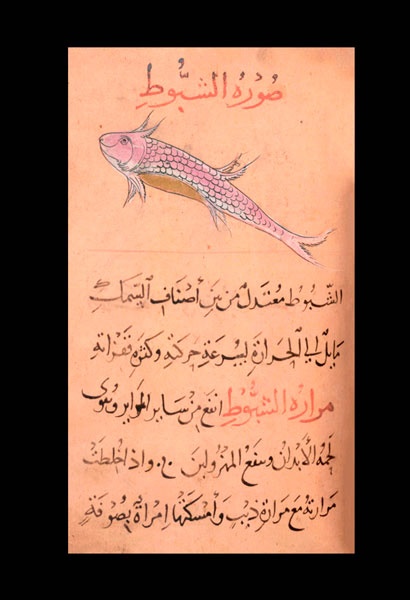 صورة الشبُّوطِ
الشّبُوط معتدل من بين أصناف السمك
مايل الي الحرارة لسرعة حركته وكثرة قفزاته
مرارة الشبُّوطِ انفع من ساير المراير ويقوى
لحمه الأبدان وينفع المهزولين وإذا خلطت
مرارته مع مرارة ذيب وأمسكتها امراة بصوفة